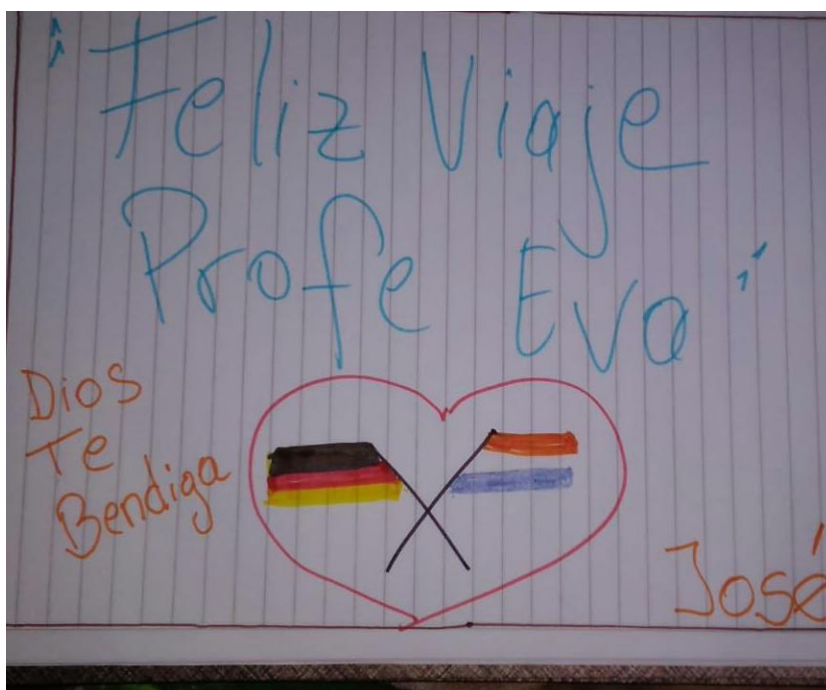 ¡Feliz Viaje
Profe Eva!
Dios
Te
Bendiga
José